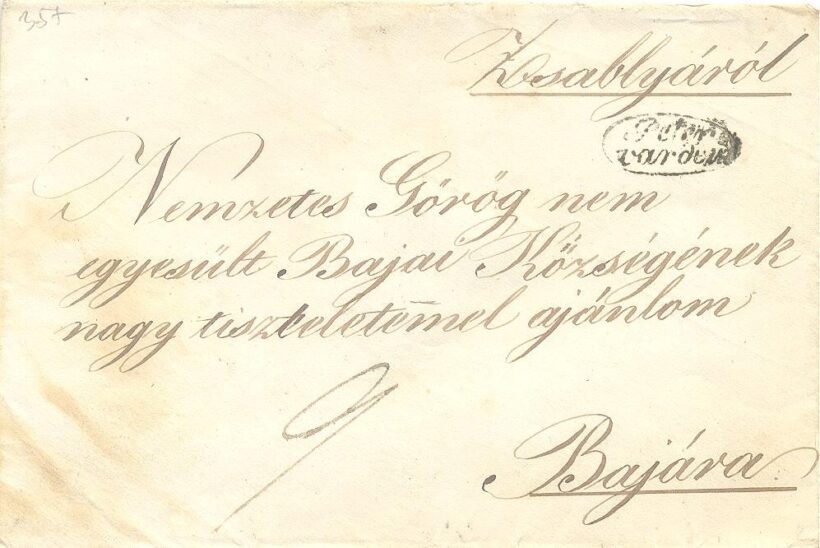 Zsablyáról
Peter
varden
Nemzetes Görög nem
egyesült Bajai Községének
nagy tiszteletem̄el ajánlom
9
Bajára